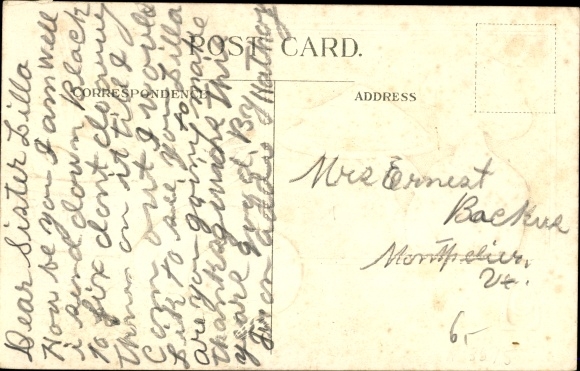 POST CARD.
CORRESPONDENCE
ADDRESS
Dear Sister Lilla
How be you I am well
i send down Black
to fix dont
them on it till I
Com out I would
Like to see you Lilla
are you going to
thanks this
year good By
from Addie
Mrs Ernest
Backus
Montpelier,
Vt.
6,-